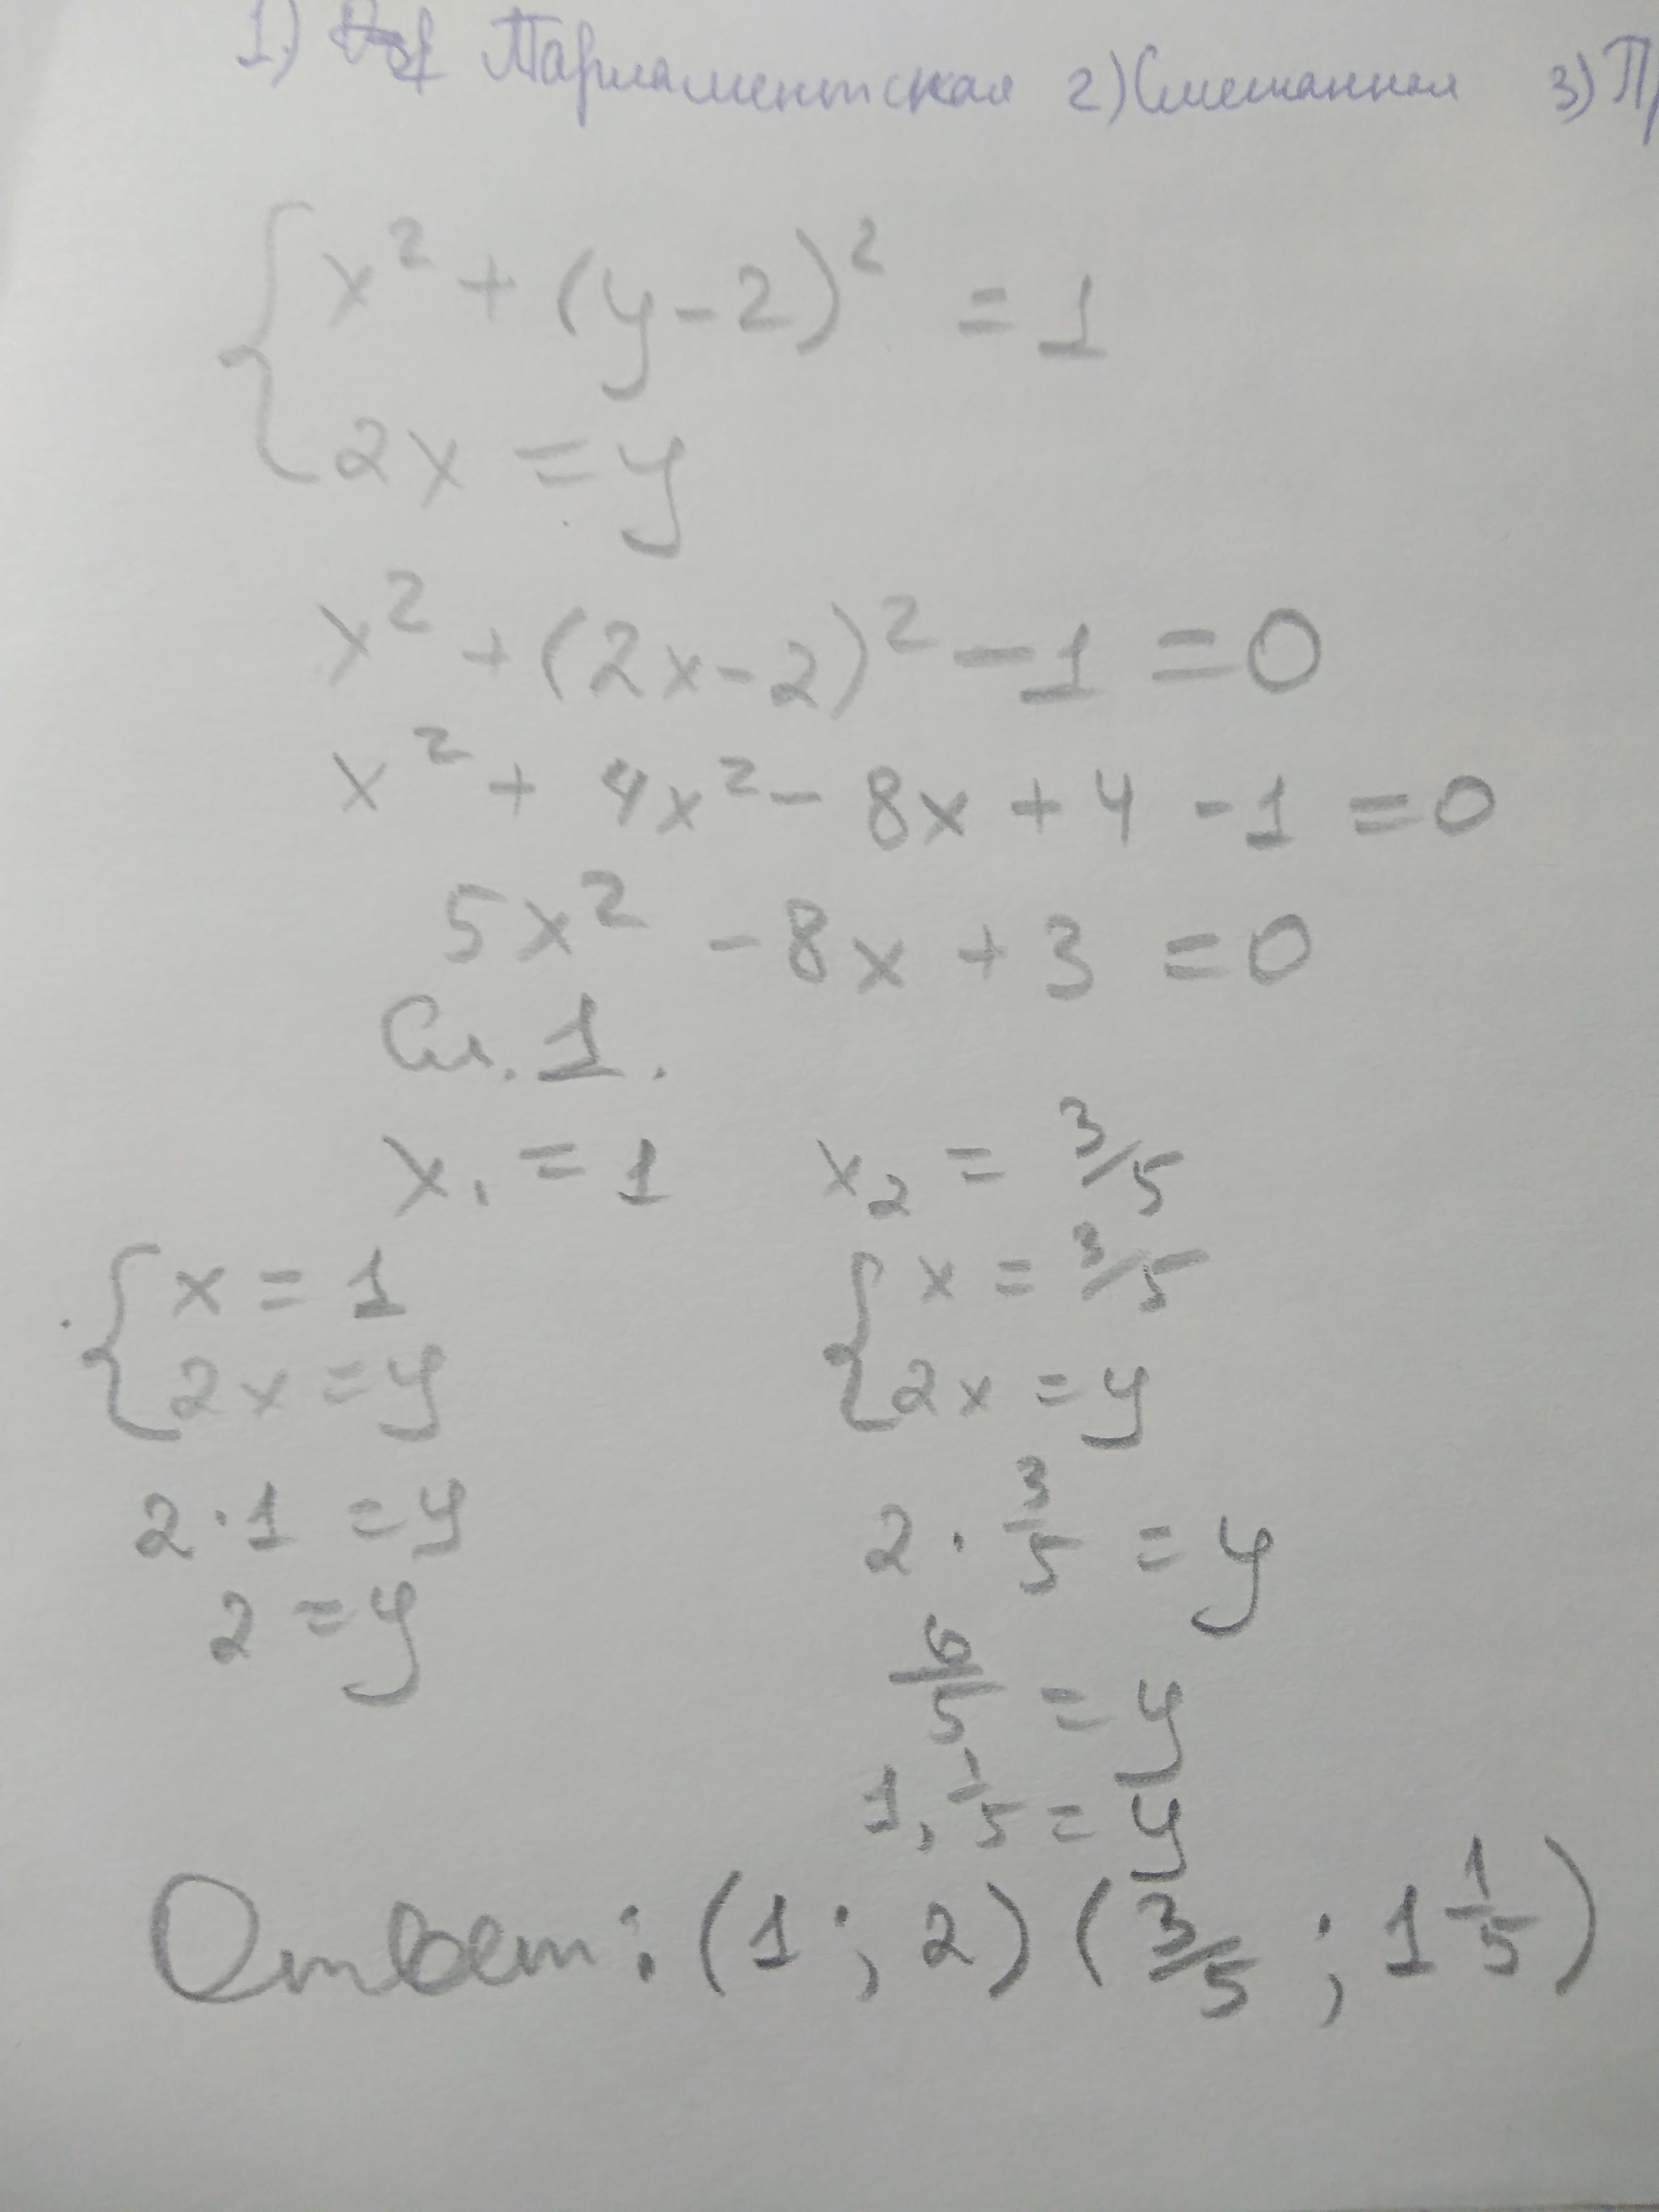 1) Парламентская 2) Смешанная 3) П
x² + (y-2)² = 1
2x = y
x² + (2x-2)² - 1 = 0
x² + 4x² - 8x + 4 - 1 = 0
5x² - 8x + 3 = 0
См. 1.
x₁ = 1 x₂ = 3/5
x = 1 x = 3/5
2x = y 2x = y
2·1 = y 2 · 3/5 = y
2 = y 6/5 = y
1, 1/5 = y
Ответ: (1 ; 2) (3/5 ; 1 1/5)